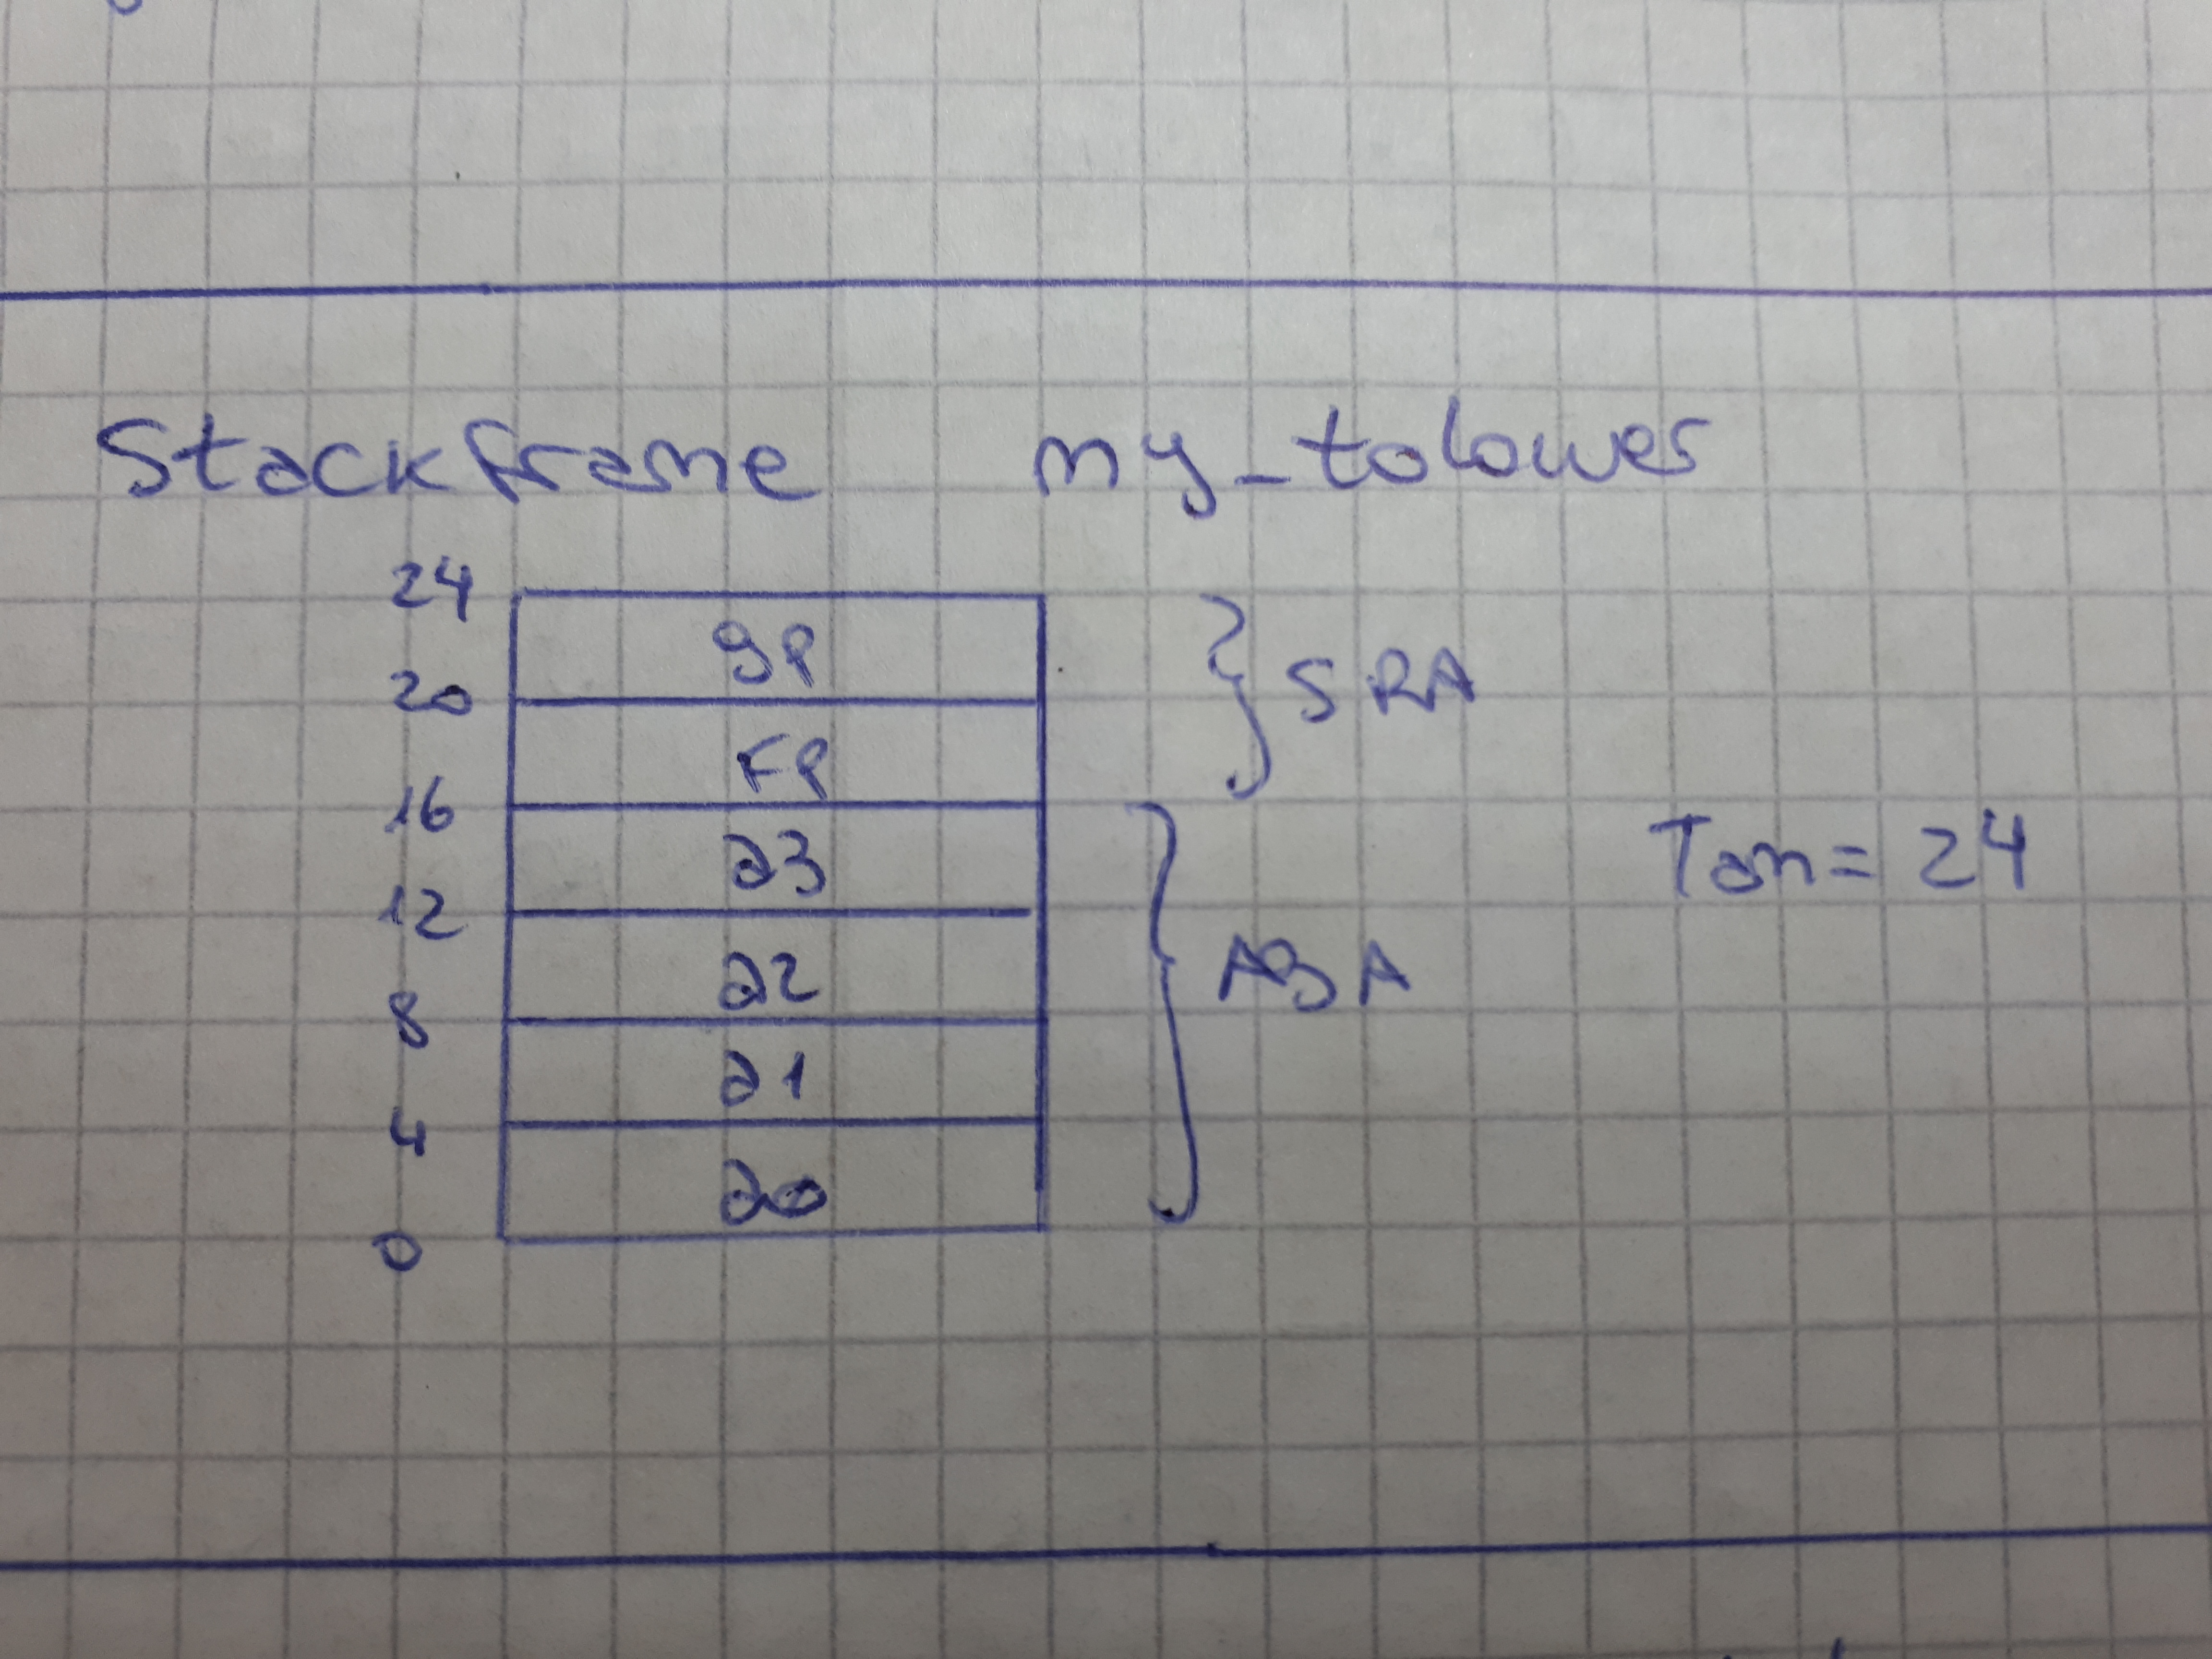 Stackframe my_tolower
24
gp
20
FP
16
a3
12
a2
8
a1
4
a0
0
SRA
ABA
Tam = 24